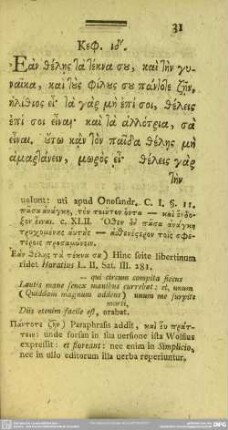 31
Κεφ. ιθ'.
Ἐὰν θέλῃς τὰ τέκνα σου, καὶ τὴν γυ-
ναῖκα, καὶ τοὺς φίλους σου πάντοτε ζῆν,
ἠλίθιος εἶ· τὰ γὰρ μὴ ἐπὶ σοὶ, θέλεις
ἐπὶ σοὶ εἶναι· καὶ τὰ ἀλλότρια, σὰ
εἶναι. οὕτω κἂν τὸν παῖδα θέλῃς μὴ
ἁμαρτάνειν, μωρὸς εἶ· θέλεις γὰρ
τὴν
uolunt: uti apud Onosandr. C. I. §. 11.
πᾶσα ἀνάγκη, τὸν πιστὸν ὄντα — καὶ ἔνδο-
ξον εἶναι. c. XLII. Ὅθεν πᾶσα ἀνάγκη
τρυχομένους αὐτοὺς — ἀσθενέστερον τοῖς σφε-
τέροις
Ἐὰν θέλῃς τὰ τέκνα σα) Hinc scite libertinum
ridet Horatius L. II. Sat. III. 281.
— qui circum compita siccus
Lautis mane senex manibus currebat: et, unum
(Quiddam magnum addens) unum me surpite
morti,
Diis etenim facile est, orabat.
Πάντοτε ζῆν) Paraphrasis addit, καὶ εὖ πράτ-
τειν: unde forsim in sua uersione ista Wolfius
expressit: et floreant: nec enim in Simplicio,
nec in ullo editorum illa uerba reperiuntur,